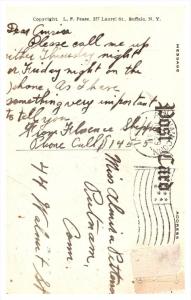 Copyright. L. F. Pease, 257 Laurel St., Buffalo, N. Y.
Dear
Please call me up
either Thursday night
or Friday night on the
phone. As I have
something very important
to tell you.
Florence
Phone Call 145-5
MESSAGE
Post Card
ADDRESS
Miss
Putnam,
Conn.
44 Walnut St